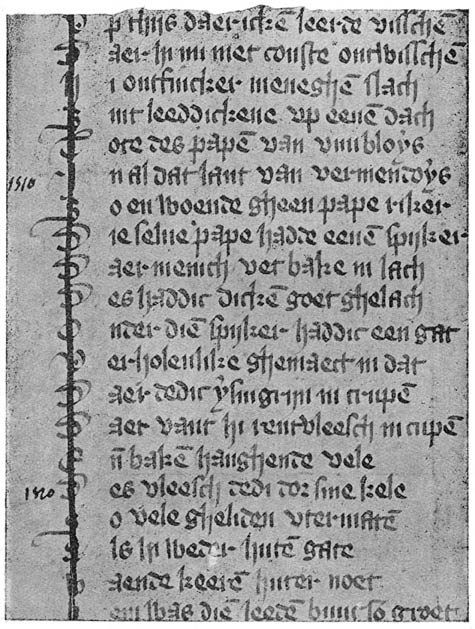 p thijs daer ickē leerde visschē
aer hi mi niet conste ontwisschē
i ontfincker meneghē slach
int leeddickene vp eenē dach
ote des papē van vimbloys
n al dat lant van vermendoys
1510
o en woende gheen pape riker
ie selue pape hadde eenē spijker
aer menich vet bake in lach
es haddic dickē goet ghelach
nder diē spijker haddic een gat
er holenlike ghemaect in dat
aer dedic ysingrijn in crupē
aer vant hi rentvleesch in cupē
n̄ bakē hanghende vele
es vleesch dedi dor sine kele
1520
o vele gheliden vtermatē
ls hi weder hutē gate
aende keerē huter noet
em was die leede buuc so groet